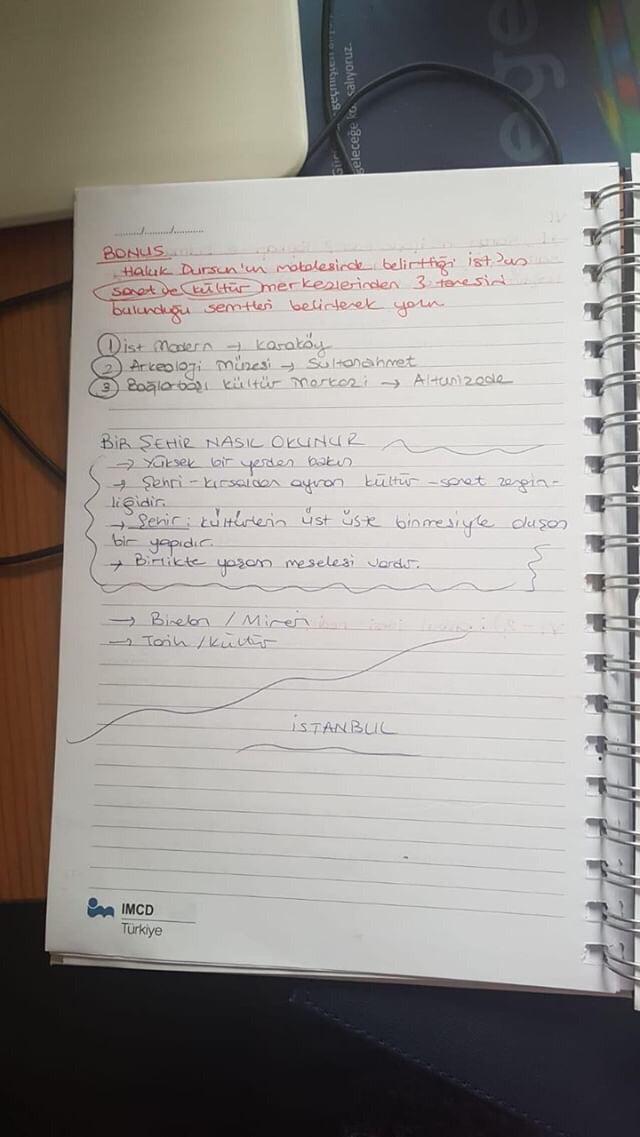 geçmişten
geleceğe
alıyoruz.
ege
....../....../......
BONUS
Haluk Dursun'un makalesinde belirttiği ist.'un
sanat ve kültür merkezlerinden 3 tanesini
bulunduğu semtleri belirterek yazın
1 ist modern → Karaköy
2 Arkeoloji müzesi → Sultanahmet
3 Bağlarbaşı kültür merkezi → Altunizade
BİR ŞEHİR NASIL OKUNUR
→ Yüksek bir yerden bakın
→ Şehri - kırsaldan ayıran kültür - sanat zengin-
liğidir.
→ Şehir: kültürlerin üst üste binmesiyle oluşan
bir yapıdır.
→ Birlikte yaşam meselesi vardır.
→ / Mimari
→ Tarih / Kültür
İSTANBUL
IMCD
Türkiye